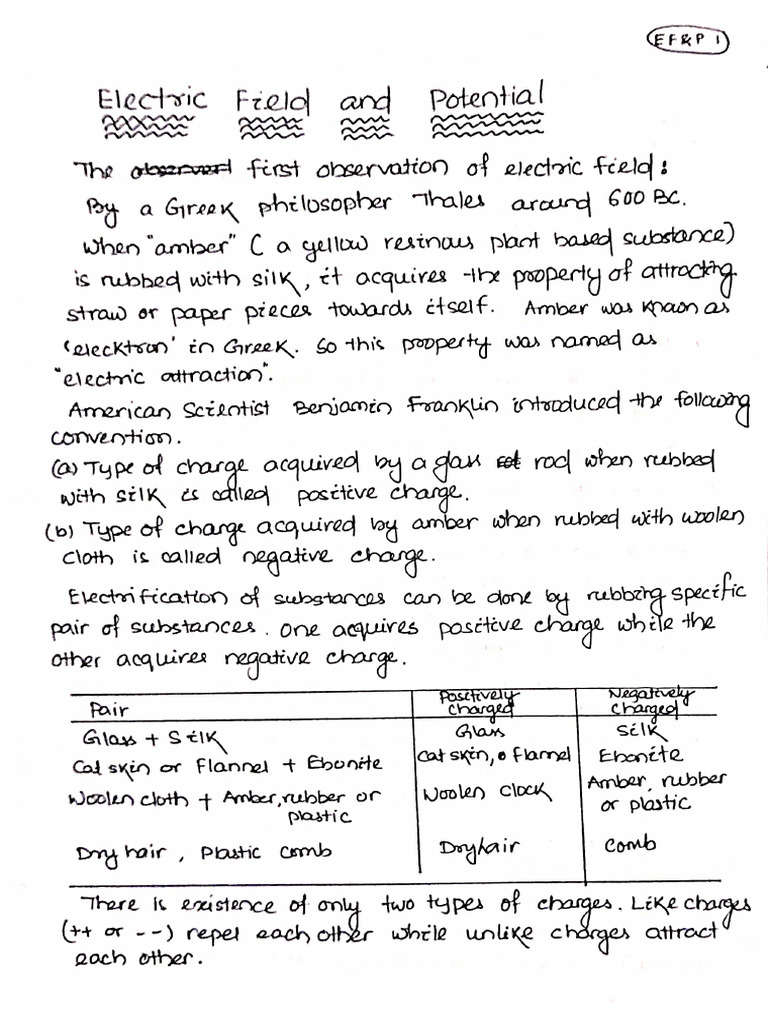 EF&P 1
Electric Field and Potential
The observed first observation of electric field:
By a Greek philosopher Thales around 600 BC.
When "amber" ( a yellow resinous plant based substance)
is rubbed with silk, it acquires the property of attracting
straw or paper pieces towards itself. Amber was known as
'elecktron' in Greek. So this property was named as
"electric attraction".
American Scientist Benjamin Franklin introduced the following
convention.
(a) Type of charge acquired by a glass rod when rubbed
with silk is called positive charge.
(b) Type of charge acquired by amber when rubbed with woolen
cloth is called negative charge.
Electrification of substances can be done by rubbing specific
pair of substances. One acquires positive charge while the
other acquires negative charge.
Pair Positively charged Negatively charged
Glass + Silk Glass Silk
Cat skin or Flannel + Ebonite Cat skin, flannel Ebonite
Woolen cloth + Amber, rubber or plastic Woolen clock Amber, rubber or plastic
Dry hair, Plastic comb Dry hair Comb
There is existence of only two types of charges. Like charges
(++ or --) repel each other while unlike charges attract
each other.